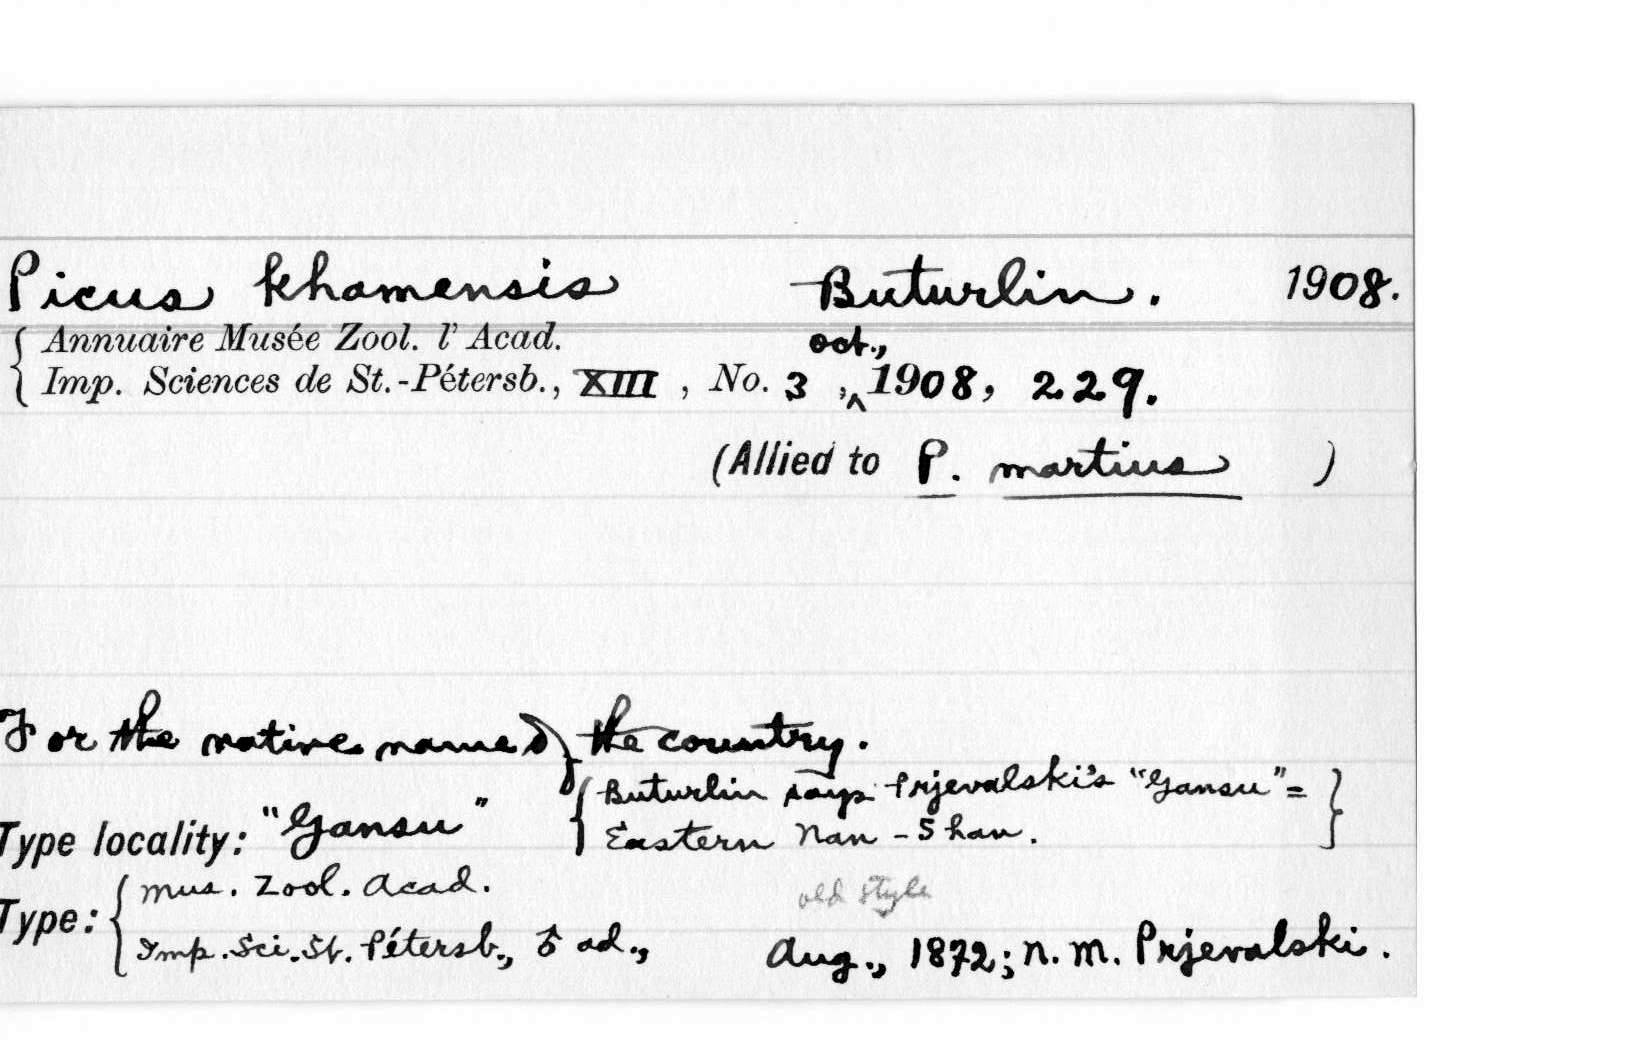 Picus khamensis Buturlin. 1908.
{ Annuaire Musée Zool. l' Acad.
Imp. Sciences de St.-Pétersb., XIII, No. 3, oct., 1908, 229.
(Allied to P. martius )
For the native name of the country.
Type locality: "Gansu" { Buturlin says Prjevalski's "Gansu" =
Eastern Nan-Shan. }
Type: { Mus. Zool. Acad.
old style
Imp. Sci. St. Pétersb., ♂ ad., Aug., 1872; N. M. Prjevalski.